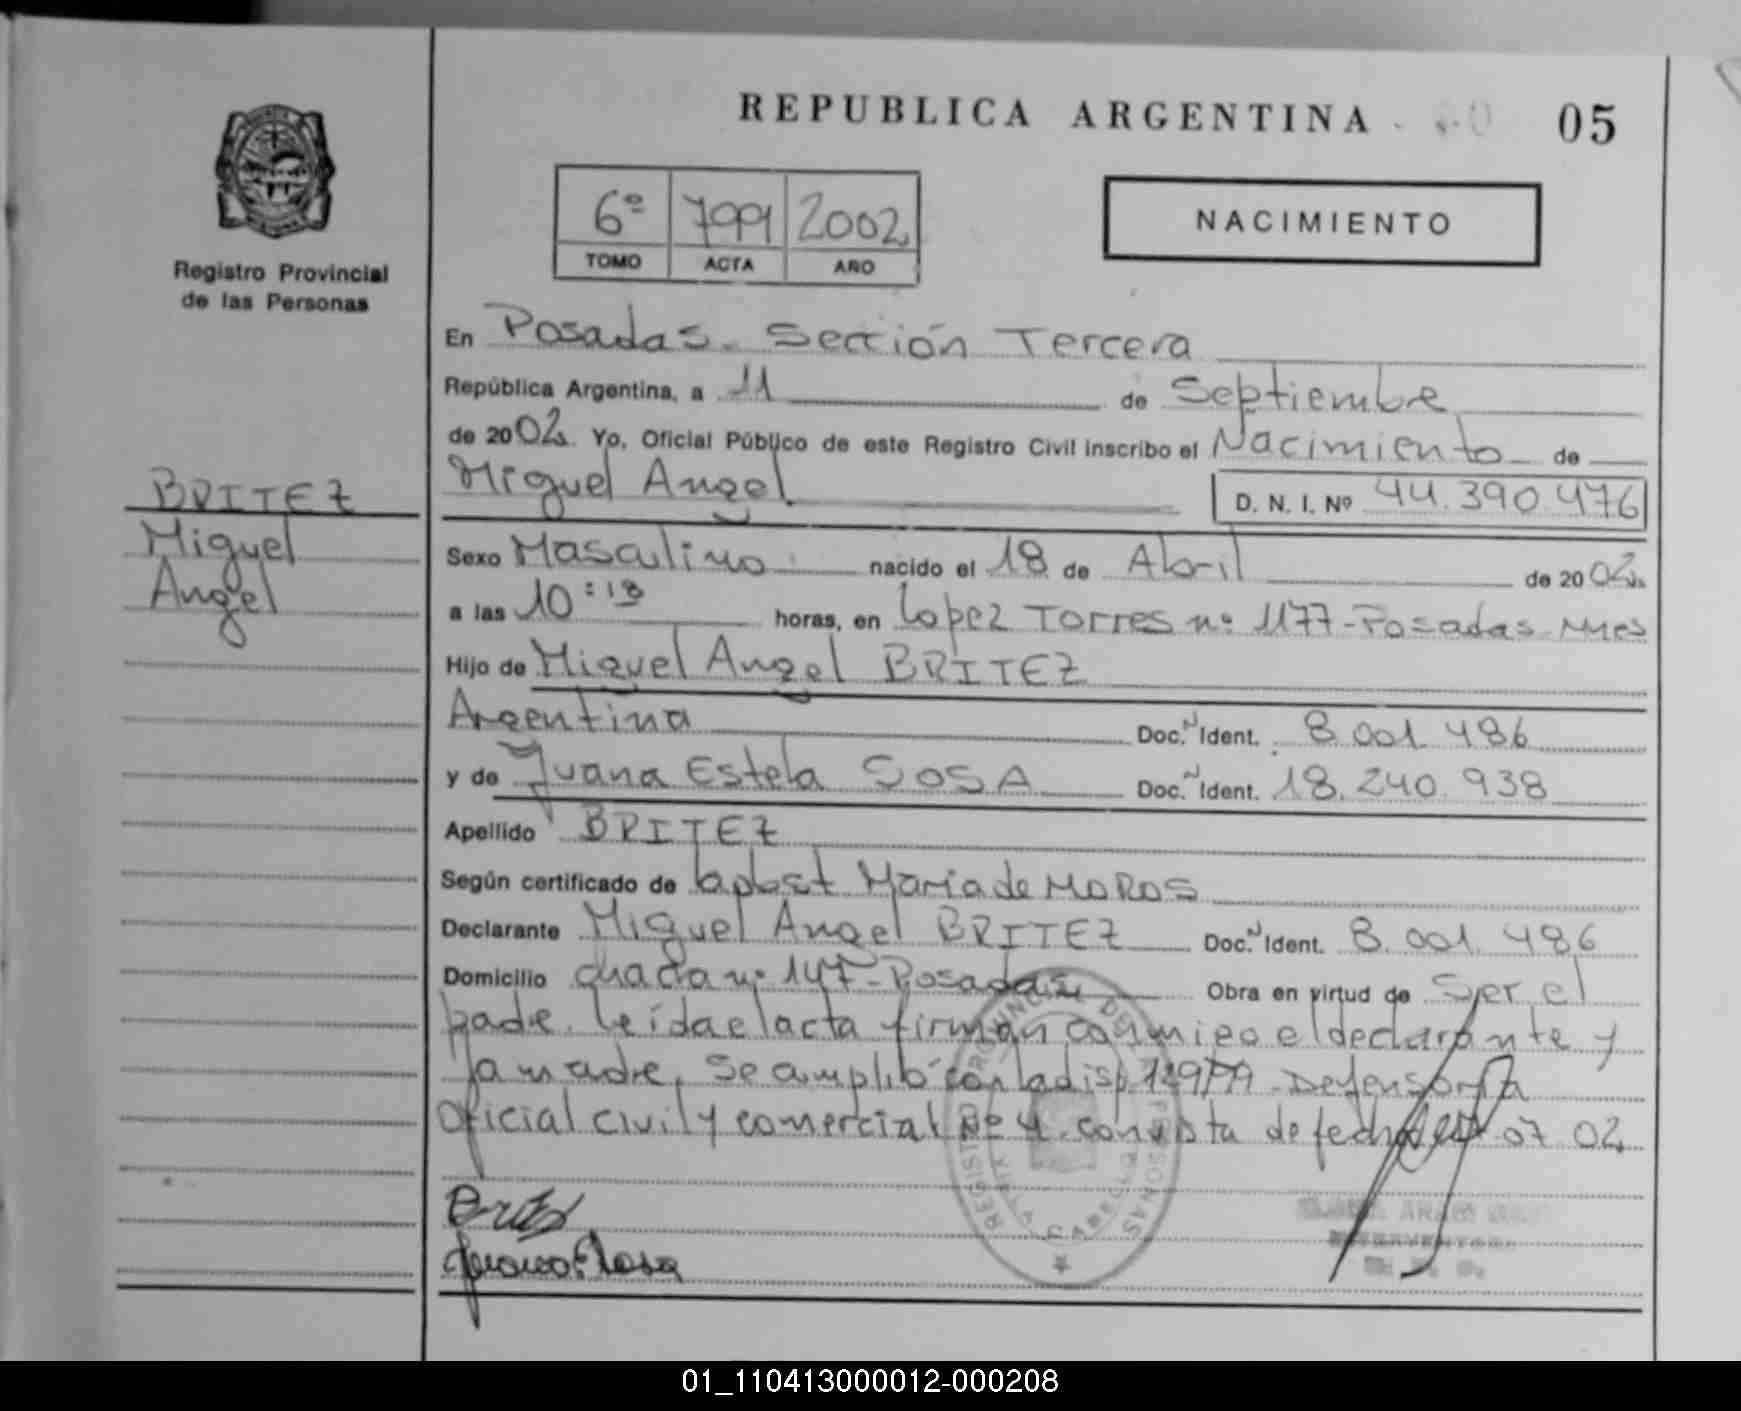 REPUBLICA ARGENTINA
05
Registro Provincial
de las Personas
6º 799 2002
TOMO ACTA AÑO
NACIMIENTO
En Posadas - Sección Tercera
República Argentina, a 11 de Septiembre
de 2002. Yo, Oficial Público de este Registro Civil inscribo el Nacimiento de
Miguel Angel
D. N. I. Nº 44.390.476
BRITEZ
Miguel
Angel
Sexo Masculino nacido el 18 de Abril de 2002
a las 10:18 horas, en Lopez Torres nº 1177 - Posadas - Mnes
Hijo de Miguel Angel BRITEZ
Argentina Doc. N Ident. 8.001.486
y de Juana Estela SOSA Doc. N Ident. 18.240.938
Apellido BRITEZ
Según certificado de Maria de MOROS
Declarante Miguel Angel BRITEZ Doc. N Ident. 8.001.486
Domicilio nº 147 - Posadas Obra en virtud de Ser el
padre. Leída el acta firman conmigo el declarante y
la madre. Se amplió con la disp Defensoría
Oficial civil y comercial Nº 4 con vista de fecha 07 02
01_110413000012-000208